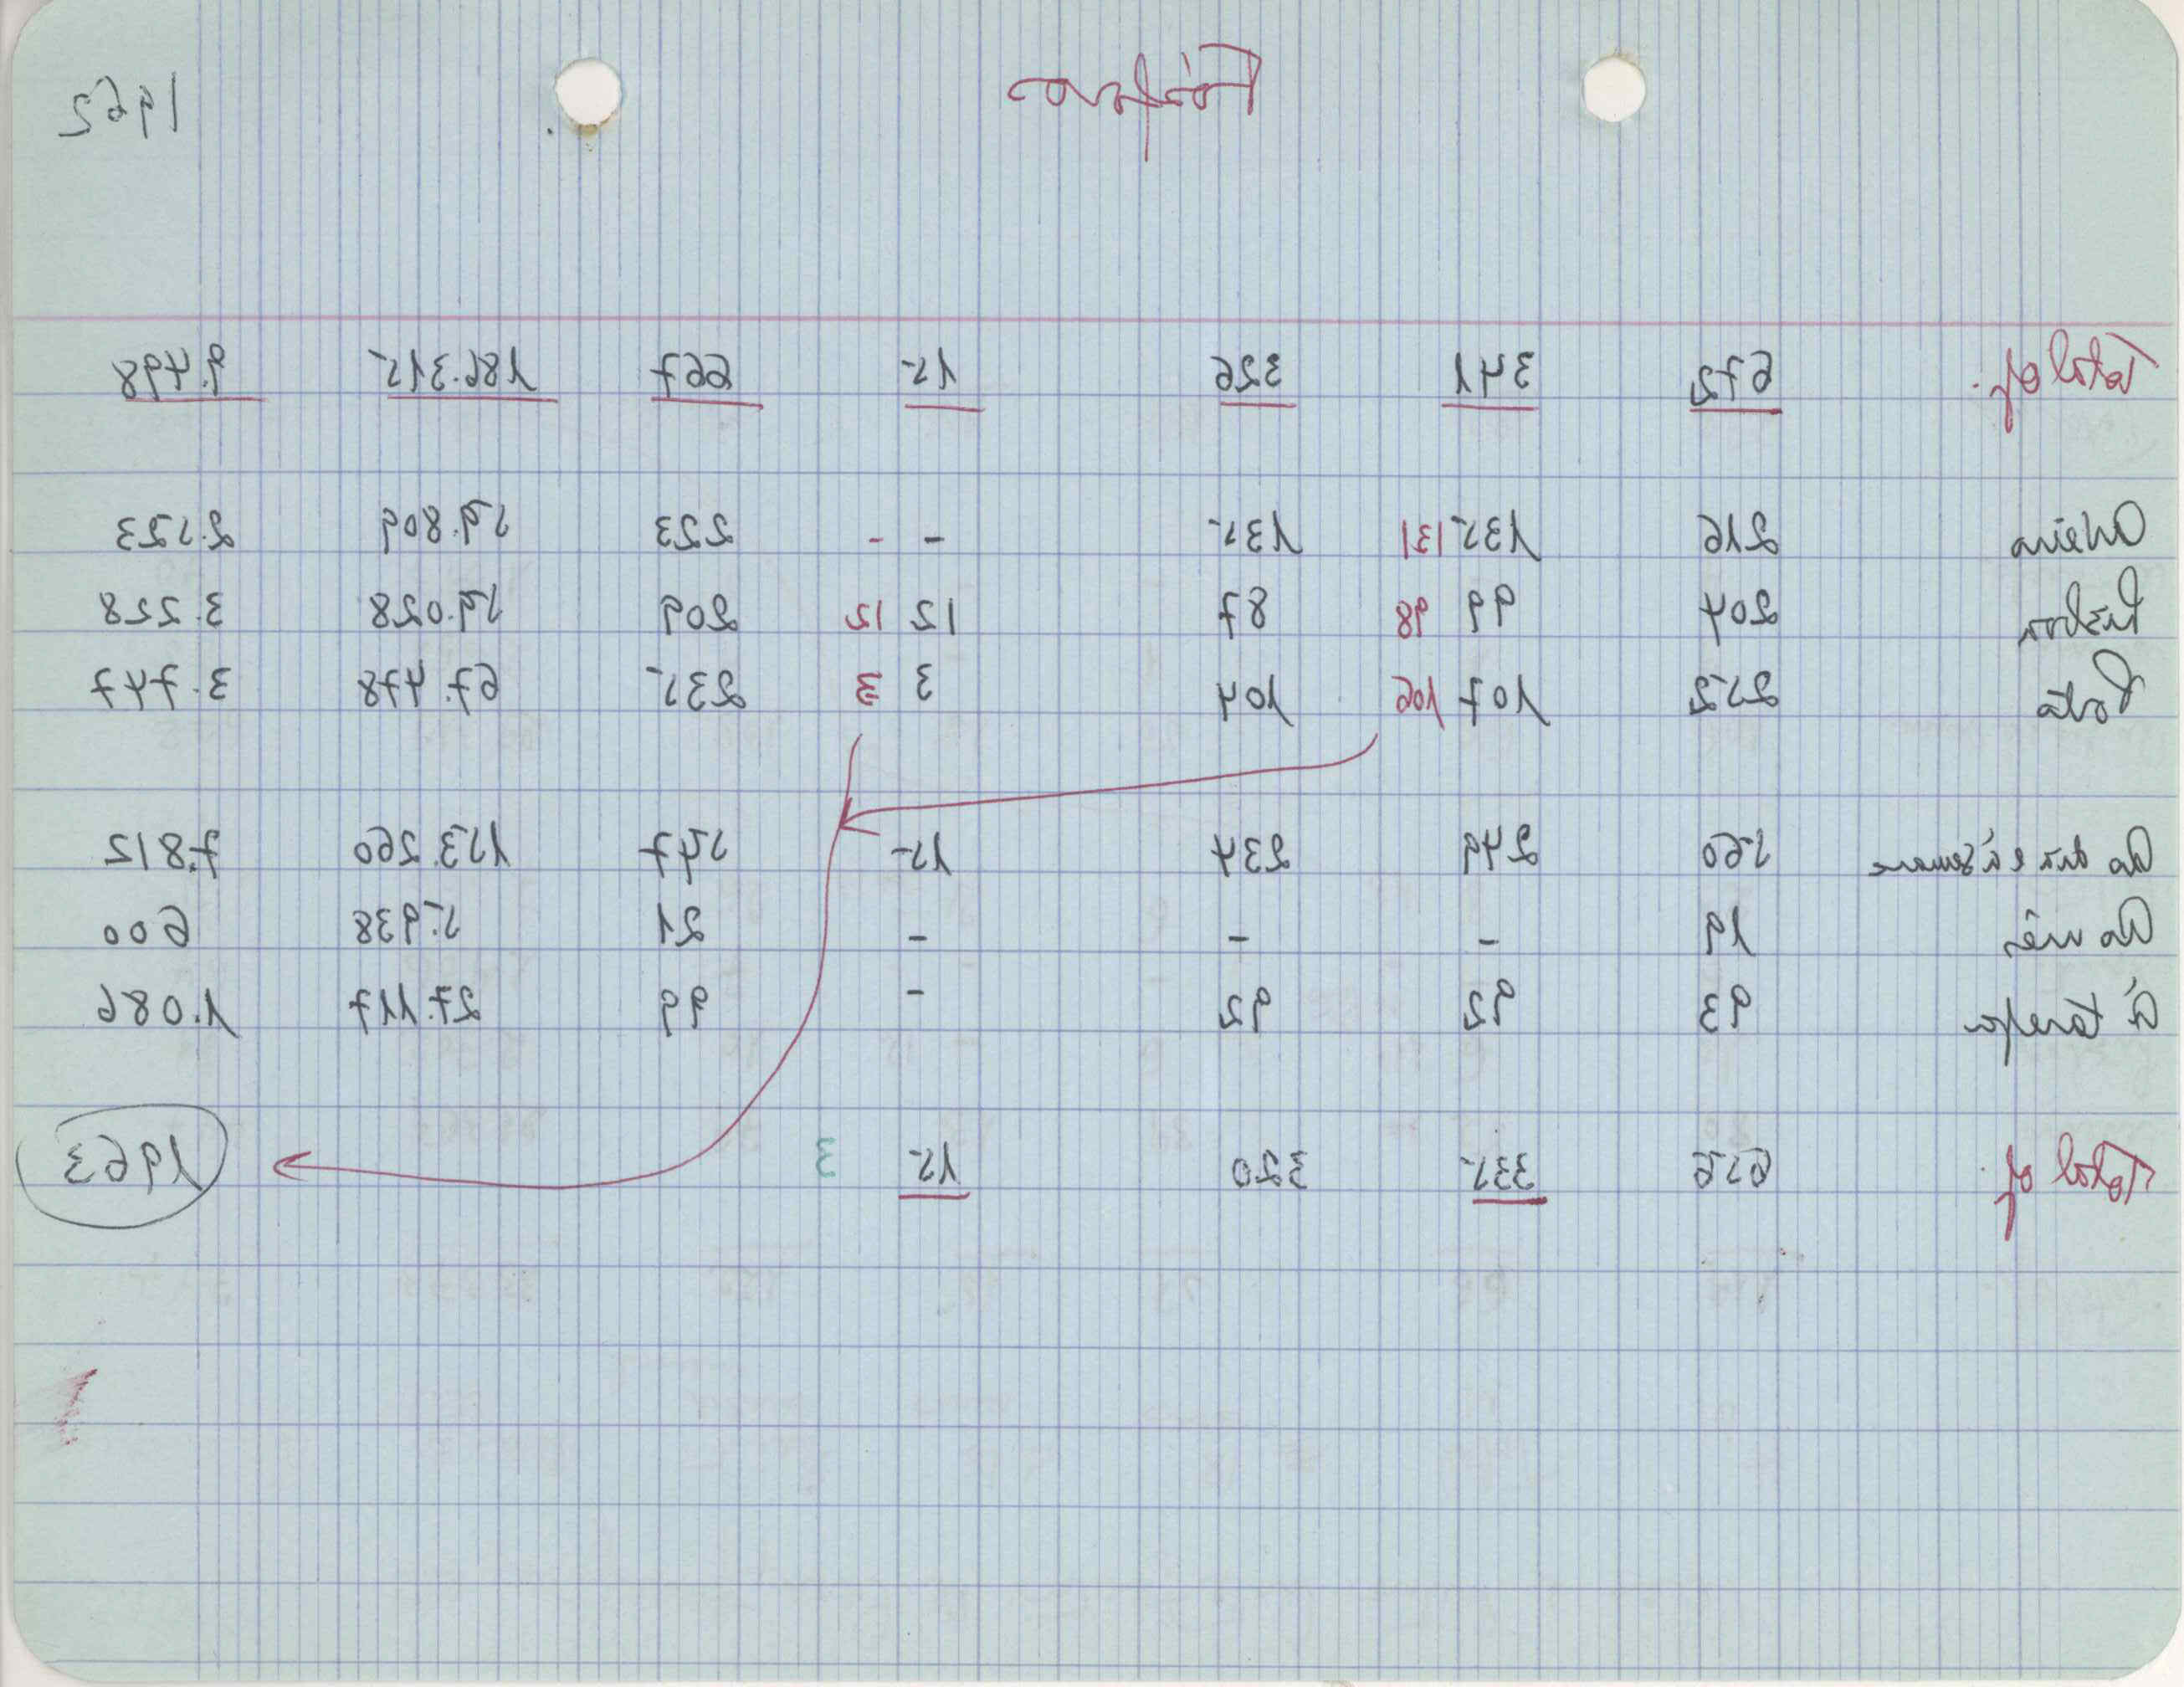 Fósforos 1962
Total of. 672 341 326 15 667 186.315 9.498
Aveiro 216 135 131 135 - - 223 59.809 2.523
Lisboa 204 99 98 87 12 12 209 59.028 3.228
Porto 252 107 106 104 3 3 235 67.478 3.747
Ao dia e à semana 560 249 234 15 547 153.260 7.812
Ao mês 19 - - - 21 5.938 600
À tarefa 93 92 92 - 99 27.117 1.086
Total of. 656 335 320 15 3 1963